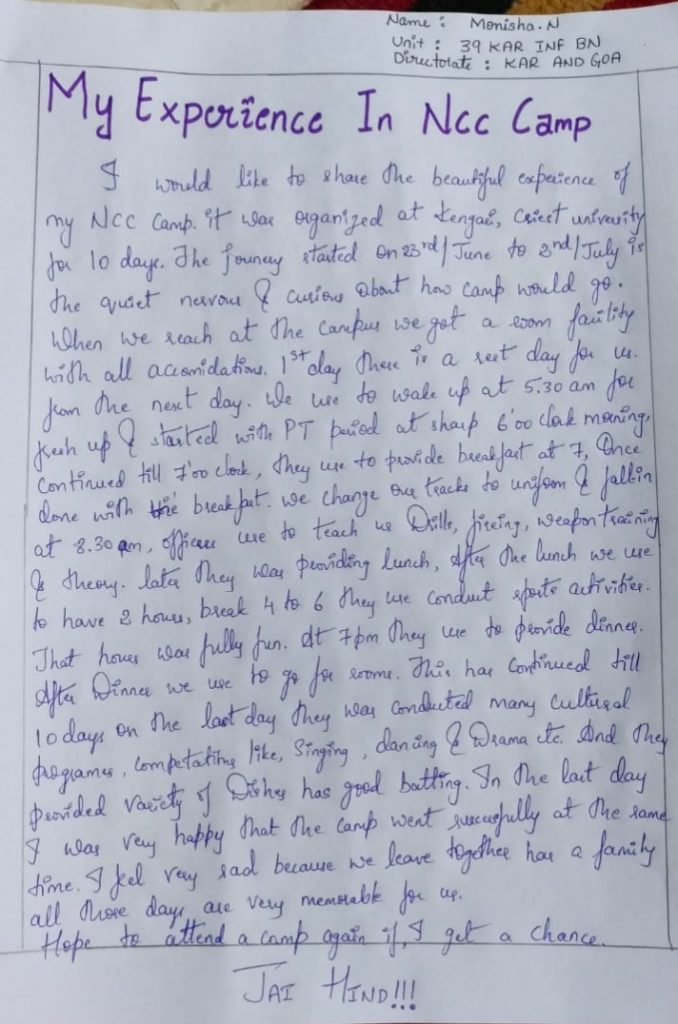 Name : Monisha.N
Unit : 39 KAR INF BN
Directolate : KAR AND GOA
My Experience In Ncc Camp
I would like to share the beautiful experience of
my NCC Camp. it was organized at Kengari, Criest university
for 10 days. The Jouney started on 23rd/June to 2nd/July is
the quiet nervous & curious about how camp would go.
When we reach at the campus we got a room facility
with all accomidations. 1st day there is a rest day for us.
from the next day. We use to wake up at 5.30 am for
fresh up & started with PT period at sharp 6'00 clock morning,
continued till 7'00 clock, they use to provide breakfast at 7, Once
done with the breakfast. we change our tracks to uniform & fallin
at 8.30 am, officers use to teach us Drills, fireing, weapon training
& theory. later they was providing lunch, After the lunch we use
to have 2 hours, break 4 to 6 they use conduct sports activities.
That hours was fully fun. At 7pm they use to provide dinner.
After Dinner we use to go for rooms. This has continued till
10 days on the last day they was conducted many cultural
programes, competations like, Singing, dancing & Drama etc. And they
provided variety of Dishes has good batting. In the last day
I was very happy that the camp went succesfully at the same
time. I feel very sad because we leave together has a family
all those days are very memorable for us.
Hope to attend a camp again if, I get a chance.
JAI HIND!!!